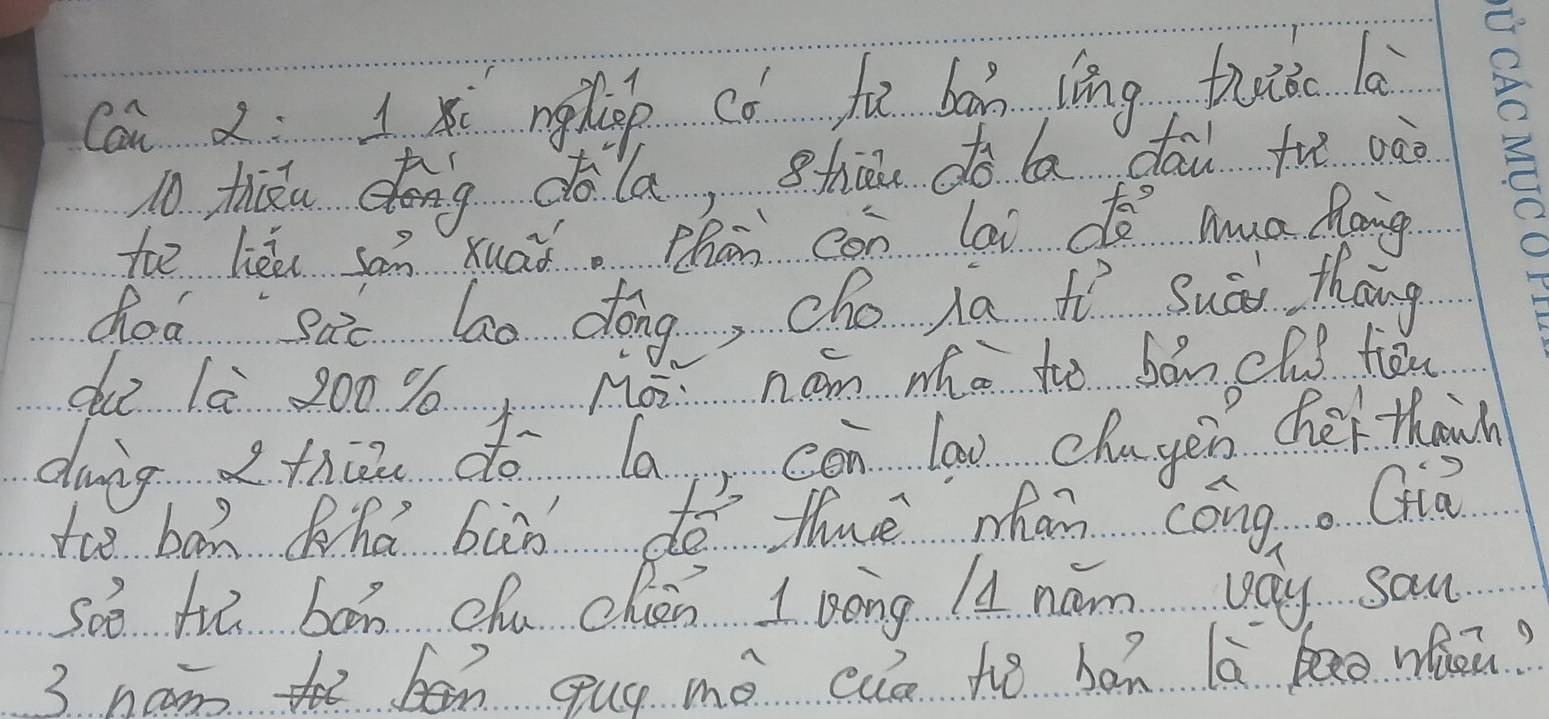 Câu 2: 1 xí nghiệp có tư bản ứng trước là
10 triệu đồng đô la, 8 triệu đô la đầu tư vào
tư liệu sản xuất. Phần còn lại để mua hàng
hoá sức lao động, cho ra tỉ suất thặng
dư là 200%, Mỗi năm nhà tư bản chỉ tiêu
dùng 2 triệu đô la, còn lại chuyển hết thành
tư bản khả biến để thuê nhân công. Giả
sử tư bản chu chiển 1 vòng /1 năm vậy sau
3 năm quy mô của tư bản là bao nhiêu?
Ử CÁC MỤC Ở PH